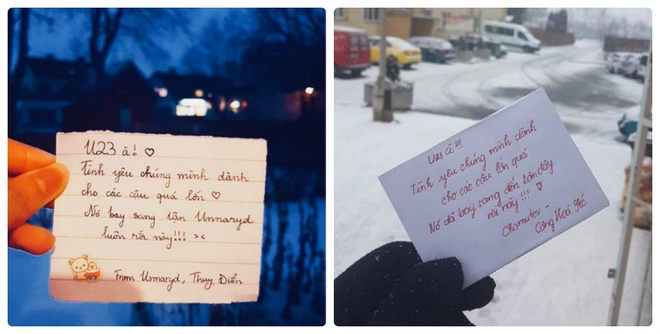 U23 à! ♡
Tình yêu chúng mình dành
cho các cậu quá lớn ♡
Nó bay sang tận Unnaryd
luôn rồi này!!! ><
From Unnaryd, Thuỵ Điển
U23 à!!!
Tình yêu chúng mình dành
cho các cậu lớn quá
Nó đã bay sang đến tận đây
rồi này!!! ♡
Chomutov -
Cộng Hoà Séc